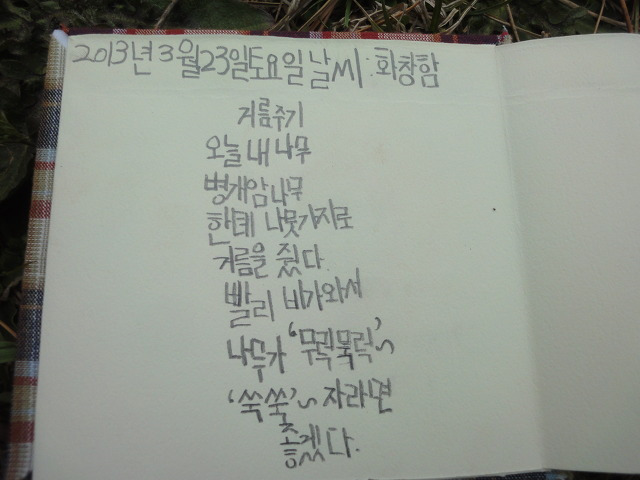 2013년 3월23일토요일 날씨:화창함
거름주기
오늘 내 나무
병개암나무
한테 나뭇가지로
거름을 줬다.
빨리 비가와서
나무가 '무럭묵럭'~
'쑥쑥'~ 자라면
좋겠다.